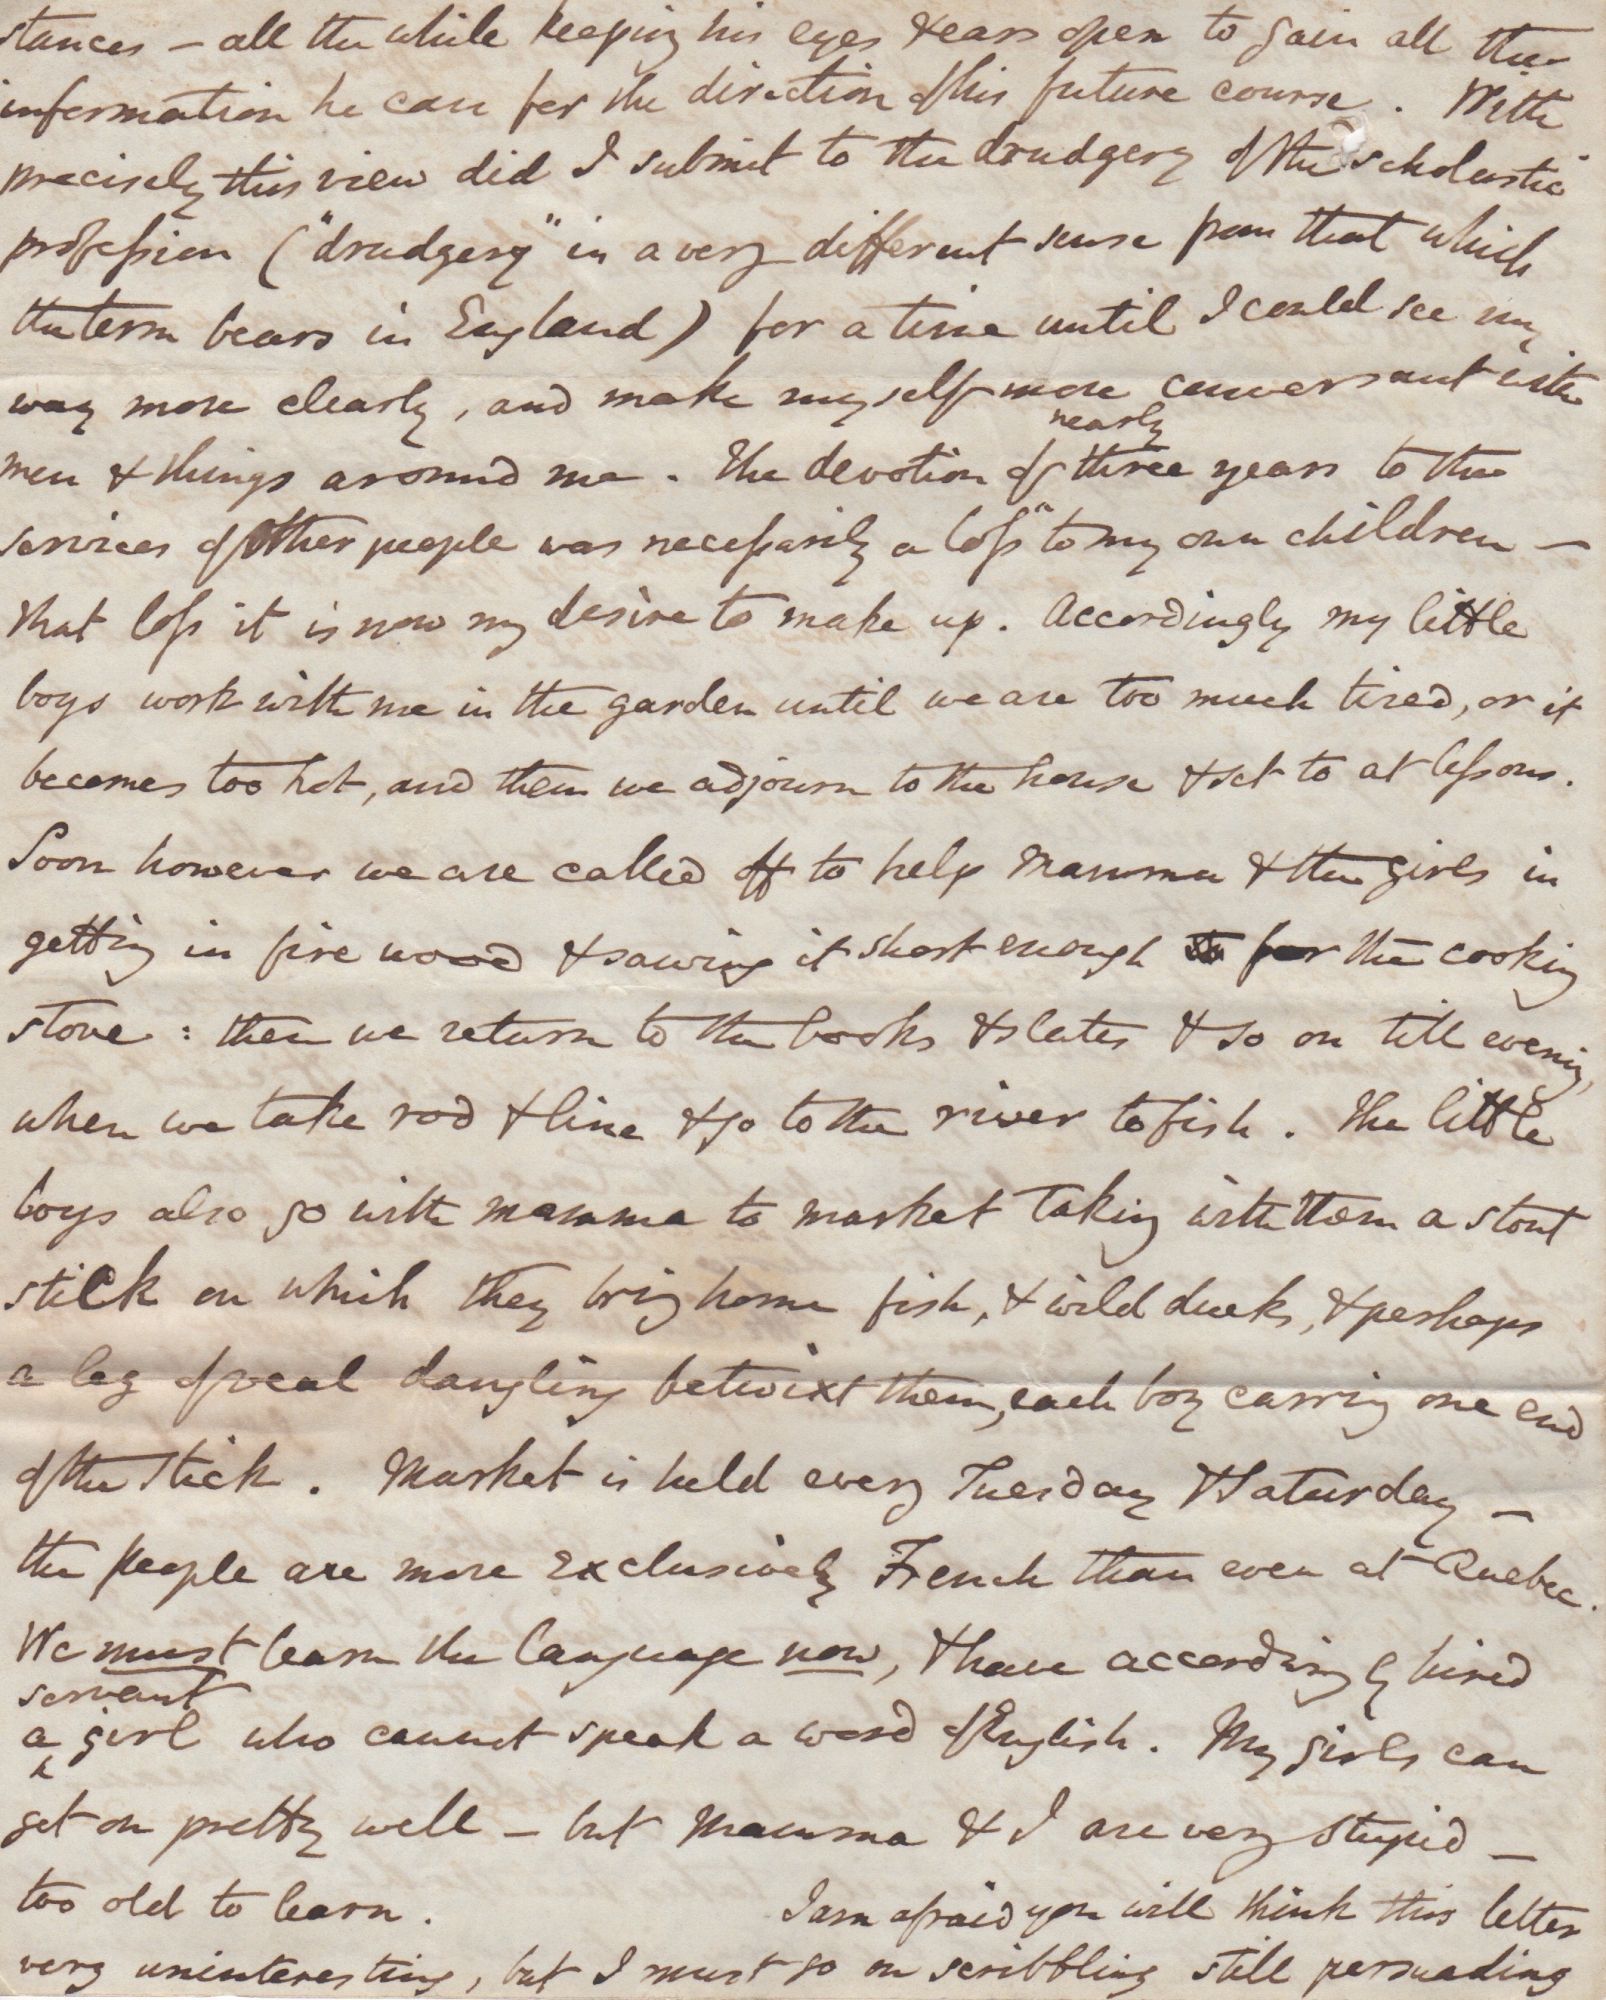 stances – all the while keeping his eyes & ears open to gain all the
information he can for the direction of his future course. With
precisely this view did I submit to the drudgery of the scholastic
profession ("drudgery" in a very different sense from that which
the term bears in England) for a time until I could see my
way more clearly, and make myself more conversant with
nearly
men & things around me. The devotion of three years to the
services of other people was necessarily a loss to my own children –
that loss it is now my desire to make up. Accordingly my little
boys work with me in the garden until we are too much tired, or it
becomes too hot, and then we adjourn to the house & set to at lessons.
Soon however we are called off to help Mamma & the girls in
getting in fire wood & sawing it short enough for the cooking
stove: then we return to the books & slates & so on till evening,
when we take rod & line & go to the river to fish. The little
boys also go with mamma to market taking with them a stout
stick on which they bring home fish, & wild ducks, & perhaps
a leg of veal dangling betwixt them, each boy carring one end
of the stick. Market is held every Tuesday & Saturday –
the people are more exclusively French than even at Quebec.
We must learn the language now, & have accordingly hired
servant
a girl who cannot speak a word of English. My girls can
get on pretty well – but Mamma & I are very stupid –
too old to learn. I am afraid you will think this letter
very uninteresting, but I must go on scribbling still persuading